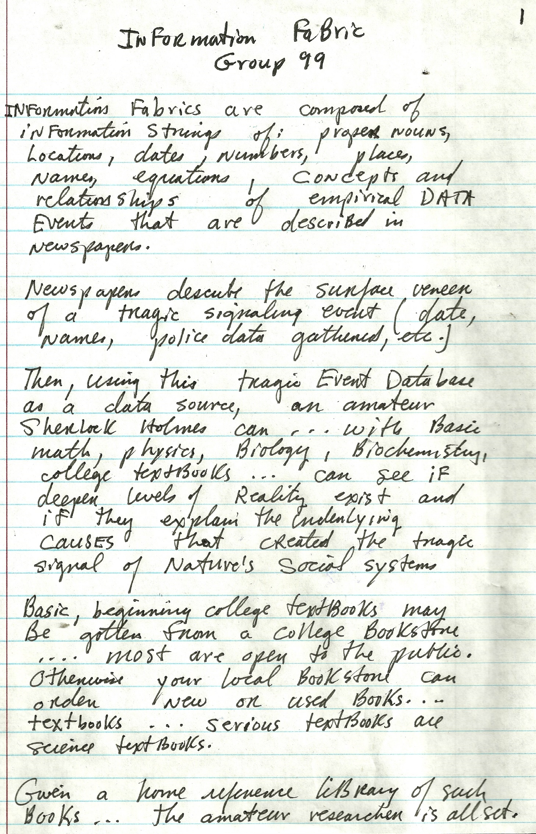 1
Information Fabric
Group 99
Information Fabrics are composed of
information Strings of: proper nouns,
Locations, dates, numbers, places,
names, equations, concepts and
relationships of empirical DATA
Events that are described in
newspapers.
Newspapers describe the surface veneer
of a tragic signaling event (date,
names, police data gathered, etc.)
Then, using this tragic Event Database
as a data source, an amateur
Sherlock Holmes can ... with Basic
math, physics, Biology, Biochemistry,
college textBooks ... can see if
deeper levels of Reality exist and
if they explain the underlying
CAUSES that created the tragic
signal of Nature's Social systems
Basic, beginning college textBooks may
Be gotten from a college Bookstore
.... most are open to the public.
Otherwise your local Bookstore can
order new or used Books....
textbooks ... serious textBooks are
science textBooks.
Given a home reference liBrary of such
Books ... the amateur researcher is all set.